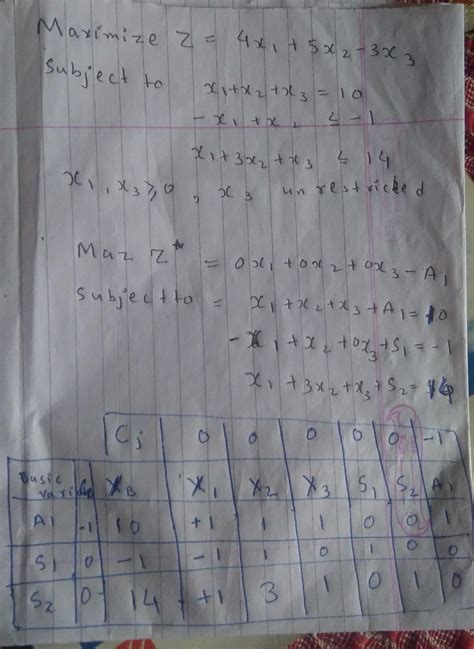 Maximize Z = 4x1 + 5x2 - 3x3
Subject to x1+x2+x3 = 10
-x1+x2 ≤ -1
x1+3x2+x3 ≤ 14
x1, x3 ≥ 0, x3 unrestricted
Max Z* = 0x1+0x2+0x3-A1
Subject to = x1+x2+x3+A1=10
-x1+x2+0x3+S1=-1
x1+3x2+x3+S2=14
Cj 0 0 0 0 0 -1
Basic variable CB XB X1 X2 X3 S1 S2 A1
A1 -1 10 +1 1 1 0 0 1
S1 0 -1 -1 1 0 1 0 0
S2 0 14 +1 3 1 0 1 0